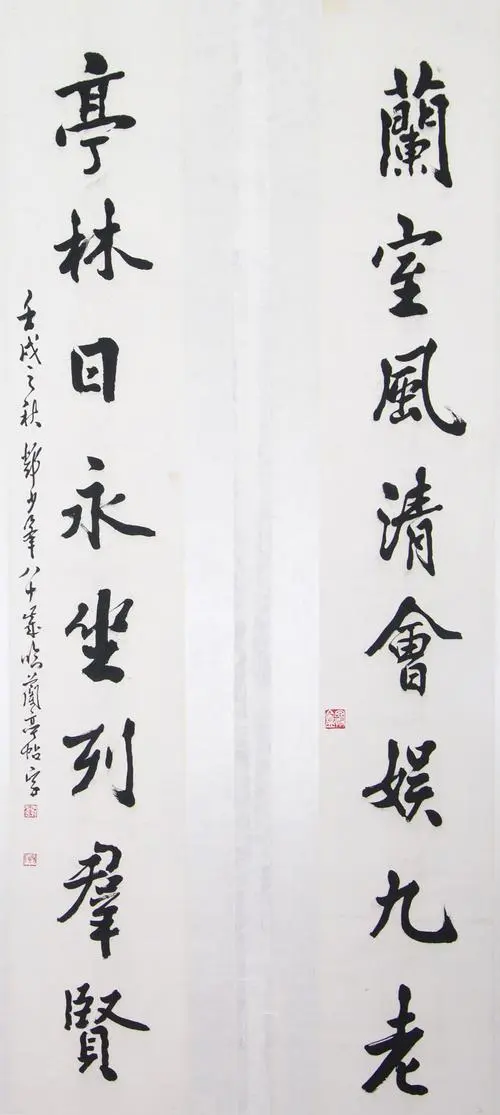 蘭室風清會娱九老
亭林日永坐列羣賢
壬戌之秋 少年八十歲臨蘭亭帖字